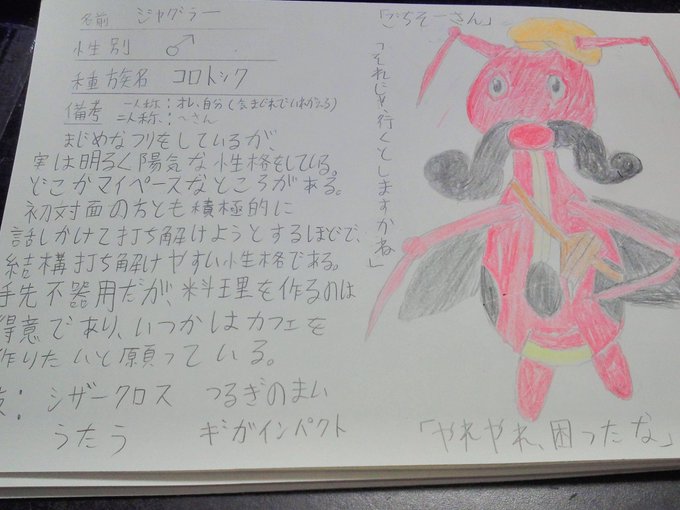 名前 ジャグラー
性別 ♂
種族名 コロトック
備考 一人称:オレ、自分(気まぐれでいれかえる)
二人称:〜さん
まじめなフリをしているが、
実は明るく陽気な性格をしている。
どこかマイペースなところがある。
初対面の方とも積極的に
話しかけて打ち解けようとするほどで、
結構打ち解けやすい性格である。
手先不器用だが、料理を作るのは
得意であり、いつかはカフェを
作りたいと願っている。
技: シザークロス つるぎのまい
うたう ギガインパクト
「ごちそーさん」
「それじゃ、行くとしますかね」
「やれやれ、困ったな」